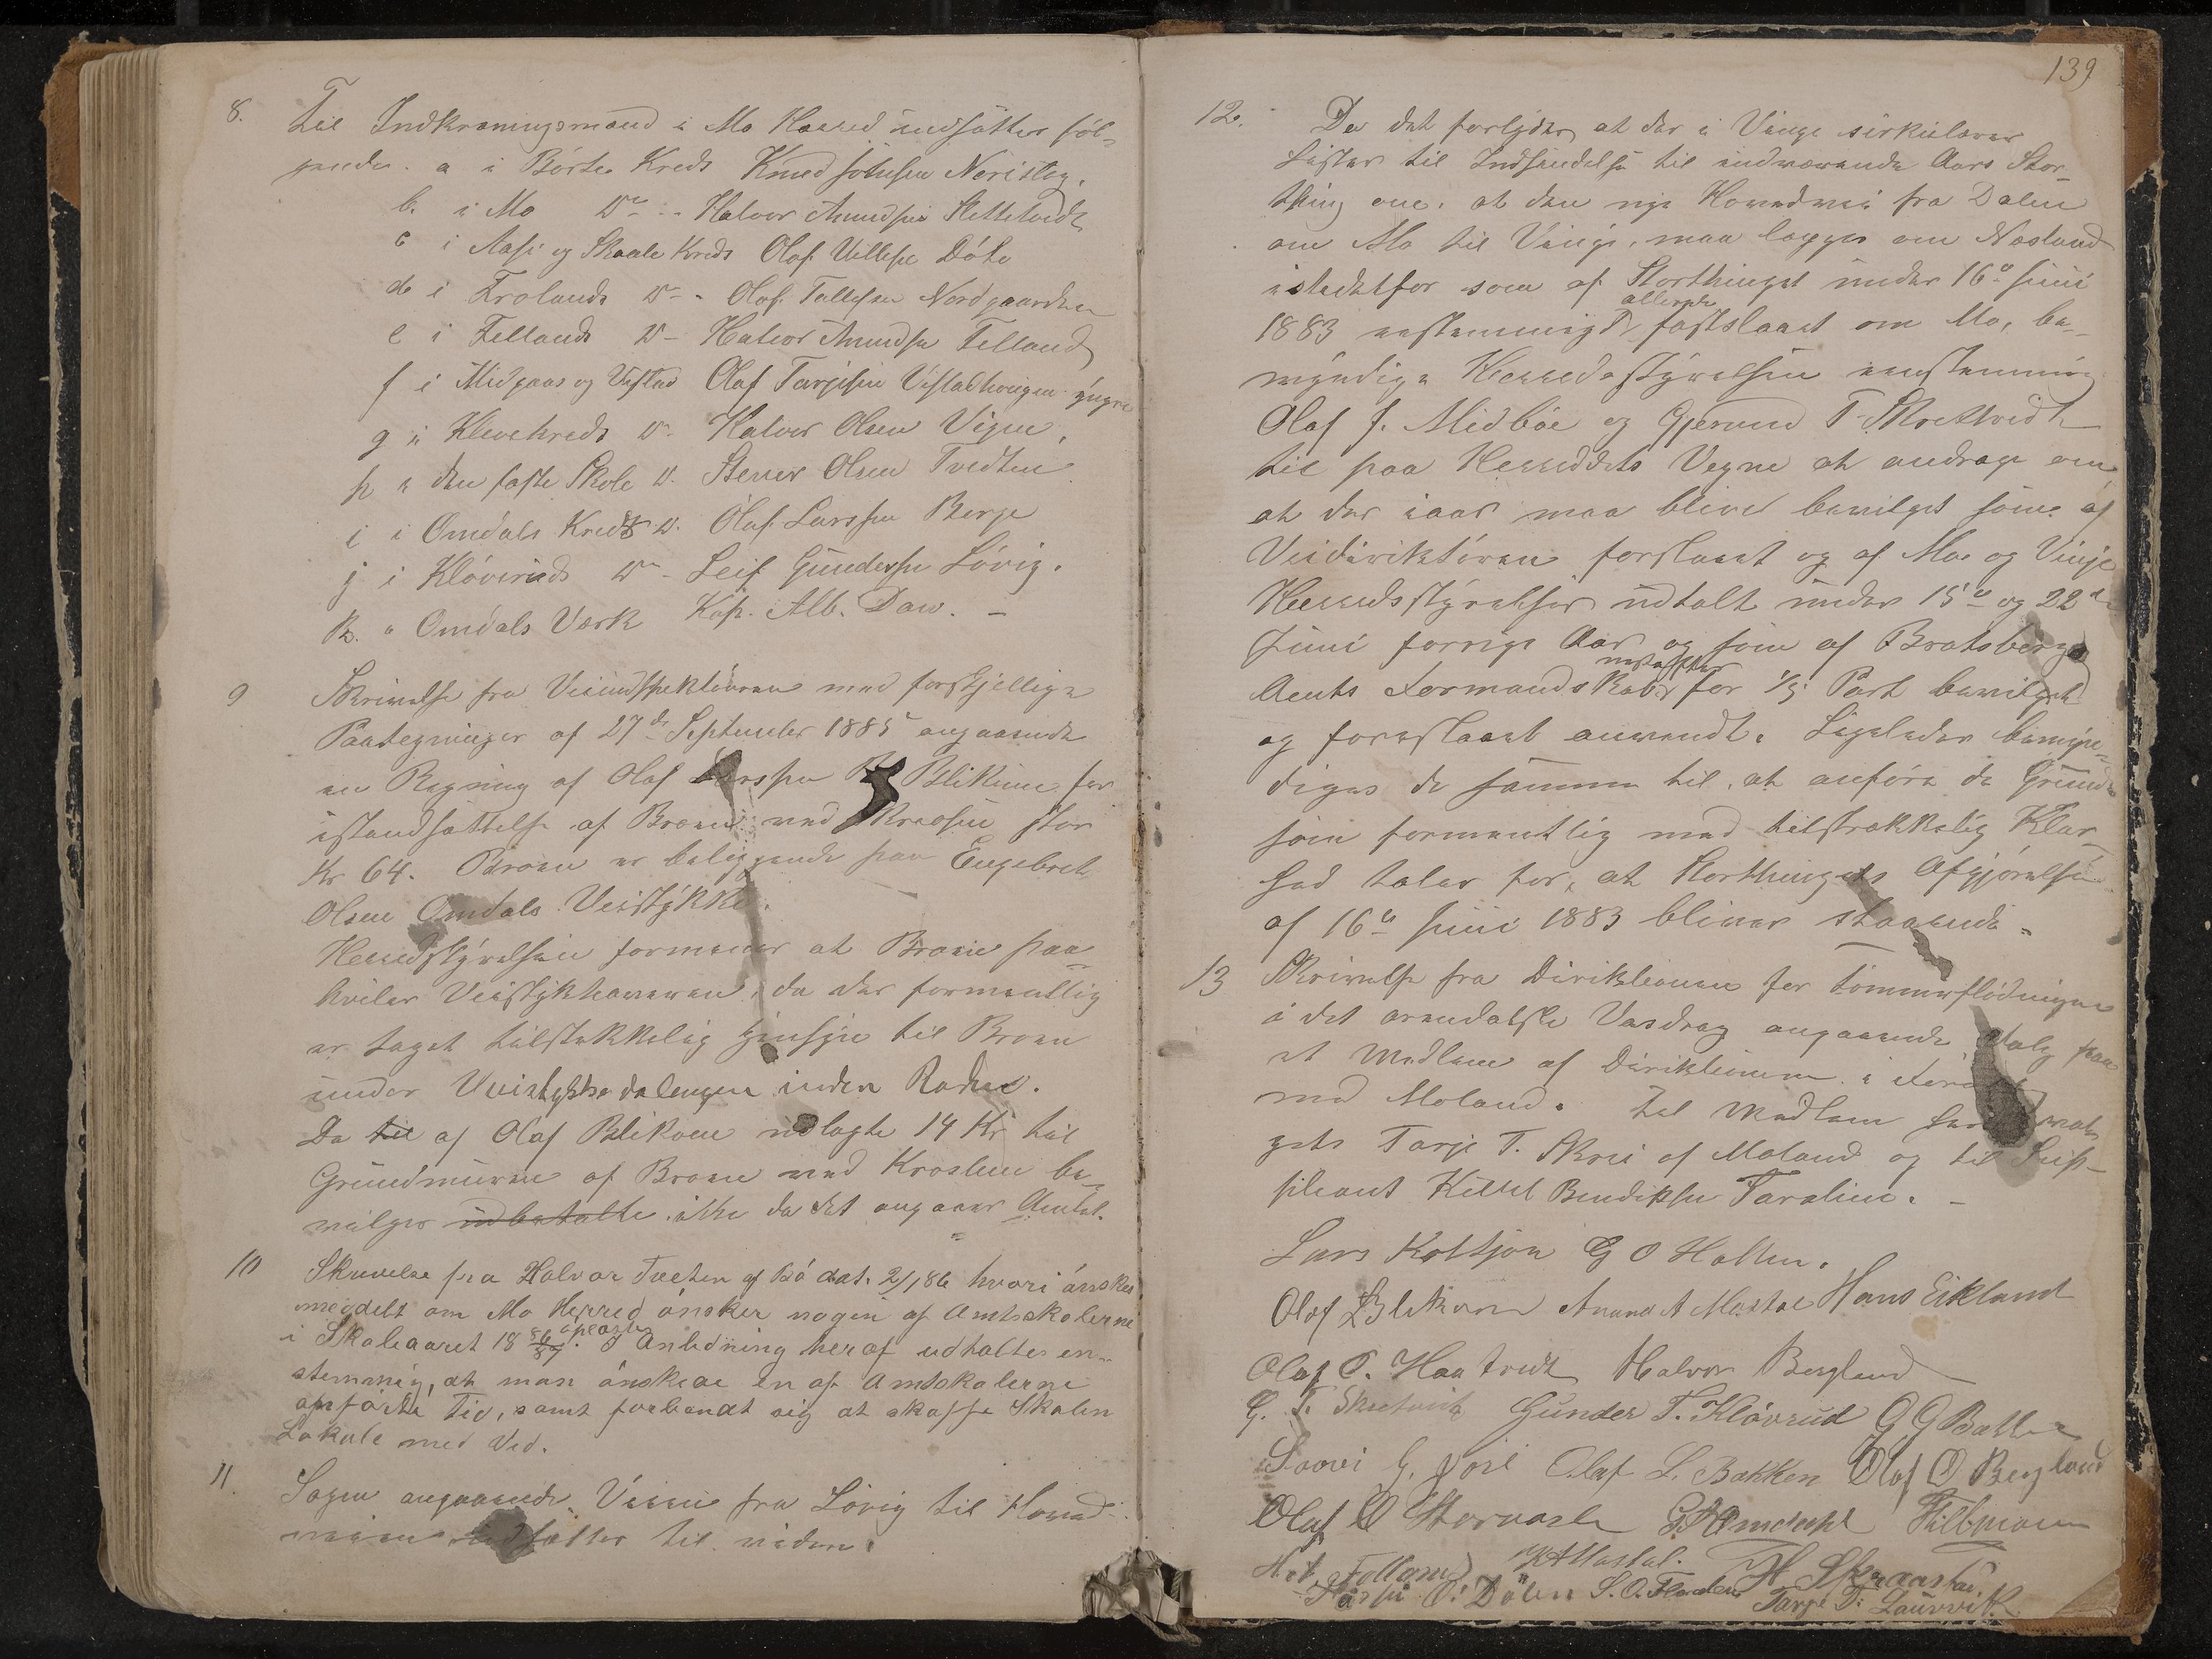 8. Til Indkræningsmænd i Mo Herred indsættes føl-
gende. a i Børte Kreds Knud Johnsen Neristeg.
b. i Mo Do - Halvor Amundsen Slettetvedt
c i Aase og Skaale Kreds Olaf Villesen Døle
d i Frolands Do - Olaf Tallefsen Nordgaarden
e i Fellands Do - Halvor Amundsen Felland
f i Midgaas og Vistad Olaf Tarjesen Vistadhougen yngre
g i Klevekreds Do. Halvor Olsen Vigen,
h i den faste Skole D. Stener Olsen Tvedten
i i Omdals Kreds D. Olaf Larssen Berge
j i Kløveruds Do - Leif Gundersen Løvig.
k. " Omdals Værk Kap. Alb. Daw. -
9 Skrivelse fra Veiinspektøren med forskjellige
Paategninger af 27de September 1885 angaaende
en Regning af Olaf Larssen Blikom for
istandsættelse af Broen ved Kroslien stor
Kr 64. Broen er beliggende paa Engebret
Olsen Omdals Veistykke.
Herredstyrelsen formener at Broen paa-
hviler Veistykhaveren, da der formentlig
er taget tilstrækkelig Hensyn til Broen
under Veistykkedelingen inden Roden.
De til af Olaf Blikom udlagte 14 Kr til
Grundmuren af Broen ved Kroslien be-
vilges udbetalte ikke da det angaar Amtet.
10 Skrivelse fra Halvor Tveten af Bø dat. 2/1 86 hvori ønskes
meddelt om Mo Herred ønsker nogen af Amtsskolerne
i Skoleaaret 18 86/87 opført. I Anledning heraf udtaltes en-
stemmig, at man ønskede en af Amtskolerne
anførte Tid, samt forbandt sig at skaffe Skolen
Lokale med Ved.
11. Sagen angaaende Veien fra Løvig til Hoved-
veien udsættes til videre.
139
12. Da det forlyder at der i Vinje sirkulerer
Lister til Indsendelse til indværende Aars Stor-
thing om, at den nye Hovedvei fra Dalen
om Mo til Vinje, maa lægges om Næsland
istedetfor som af Storthinget under 16de Juni
allerede
1883 enstemmigt fastslaaet om Mo, be-
myndiger Herredsstyrelsen enstemmig
Olaf J. Midbøe og Gjermund T. Skretveidt
til paa Herredets Vegne at andrage om
at der iaar maa blive bevilget som af
Veidirektøren forslaaet og af Mo og Vinje
Herredsstyrelser udtalt under 15de og 22de
Juni forrige Aar og som af Bratsberg
Amts Formandskab for 1/5 Part bevilget
og foreslaaet anvendt. Ligeledes bemyn-
diges de samme til, at anføre de Grunde
som formentlig med tilstrækkelig Klar-
hed taler for, at Storthingets Afgjørelse
af 16de Juni 1883 bliver staaende.
13 Skrivelse fra Direktionen for Tømmerflødningen
i det arendalske Vasdrag angaaende Valg paa
et Medlem af Direktionen i Forening
med Moland. Til Medlem
gets Tarje T. Skrei af Moland og til Sup-
pleant Kittil Bendiksen Taraldlien. -
Lars Koltjøn G O Holten.
Olaf L Blikom Anund A Mostøl Hans Eikland
Olaf O. Haatvedt Halvor Bergland
G. T. Skretveit Gunder T. Kløvrud G G Batle
Saavi G. Olaf L. Bakken Olaf O Bergland
Olaf O Storaasli G. Omdahl
H. A. Felland K A Mostøl. H. Skaarstad.
O. Dølen S. O. Tarje T. Laurvik